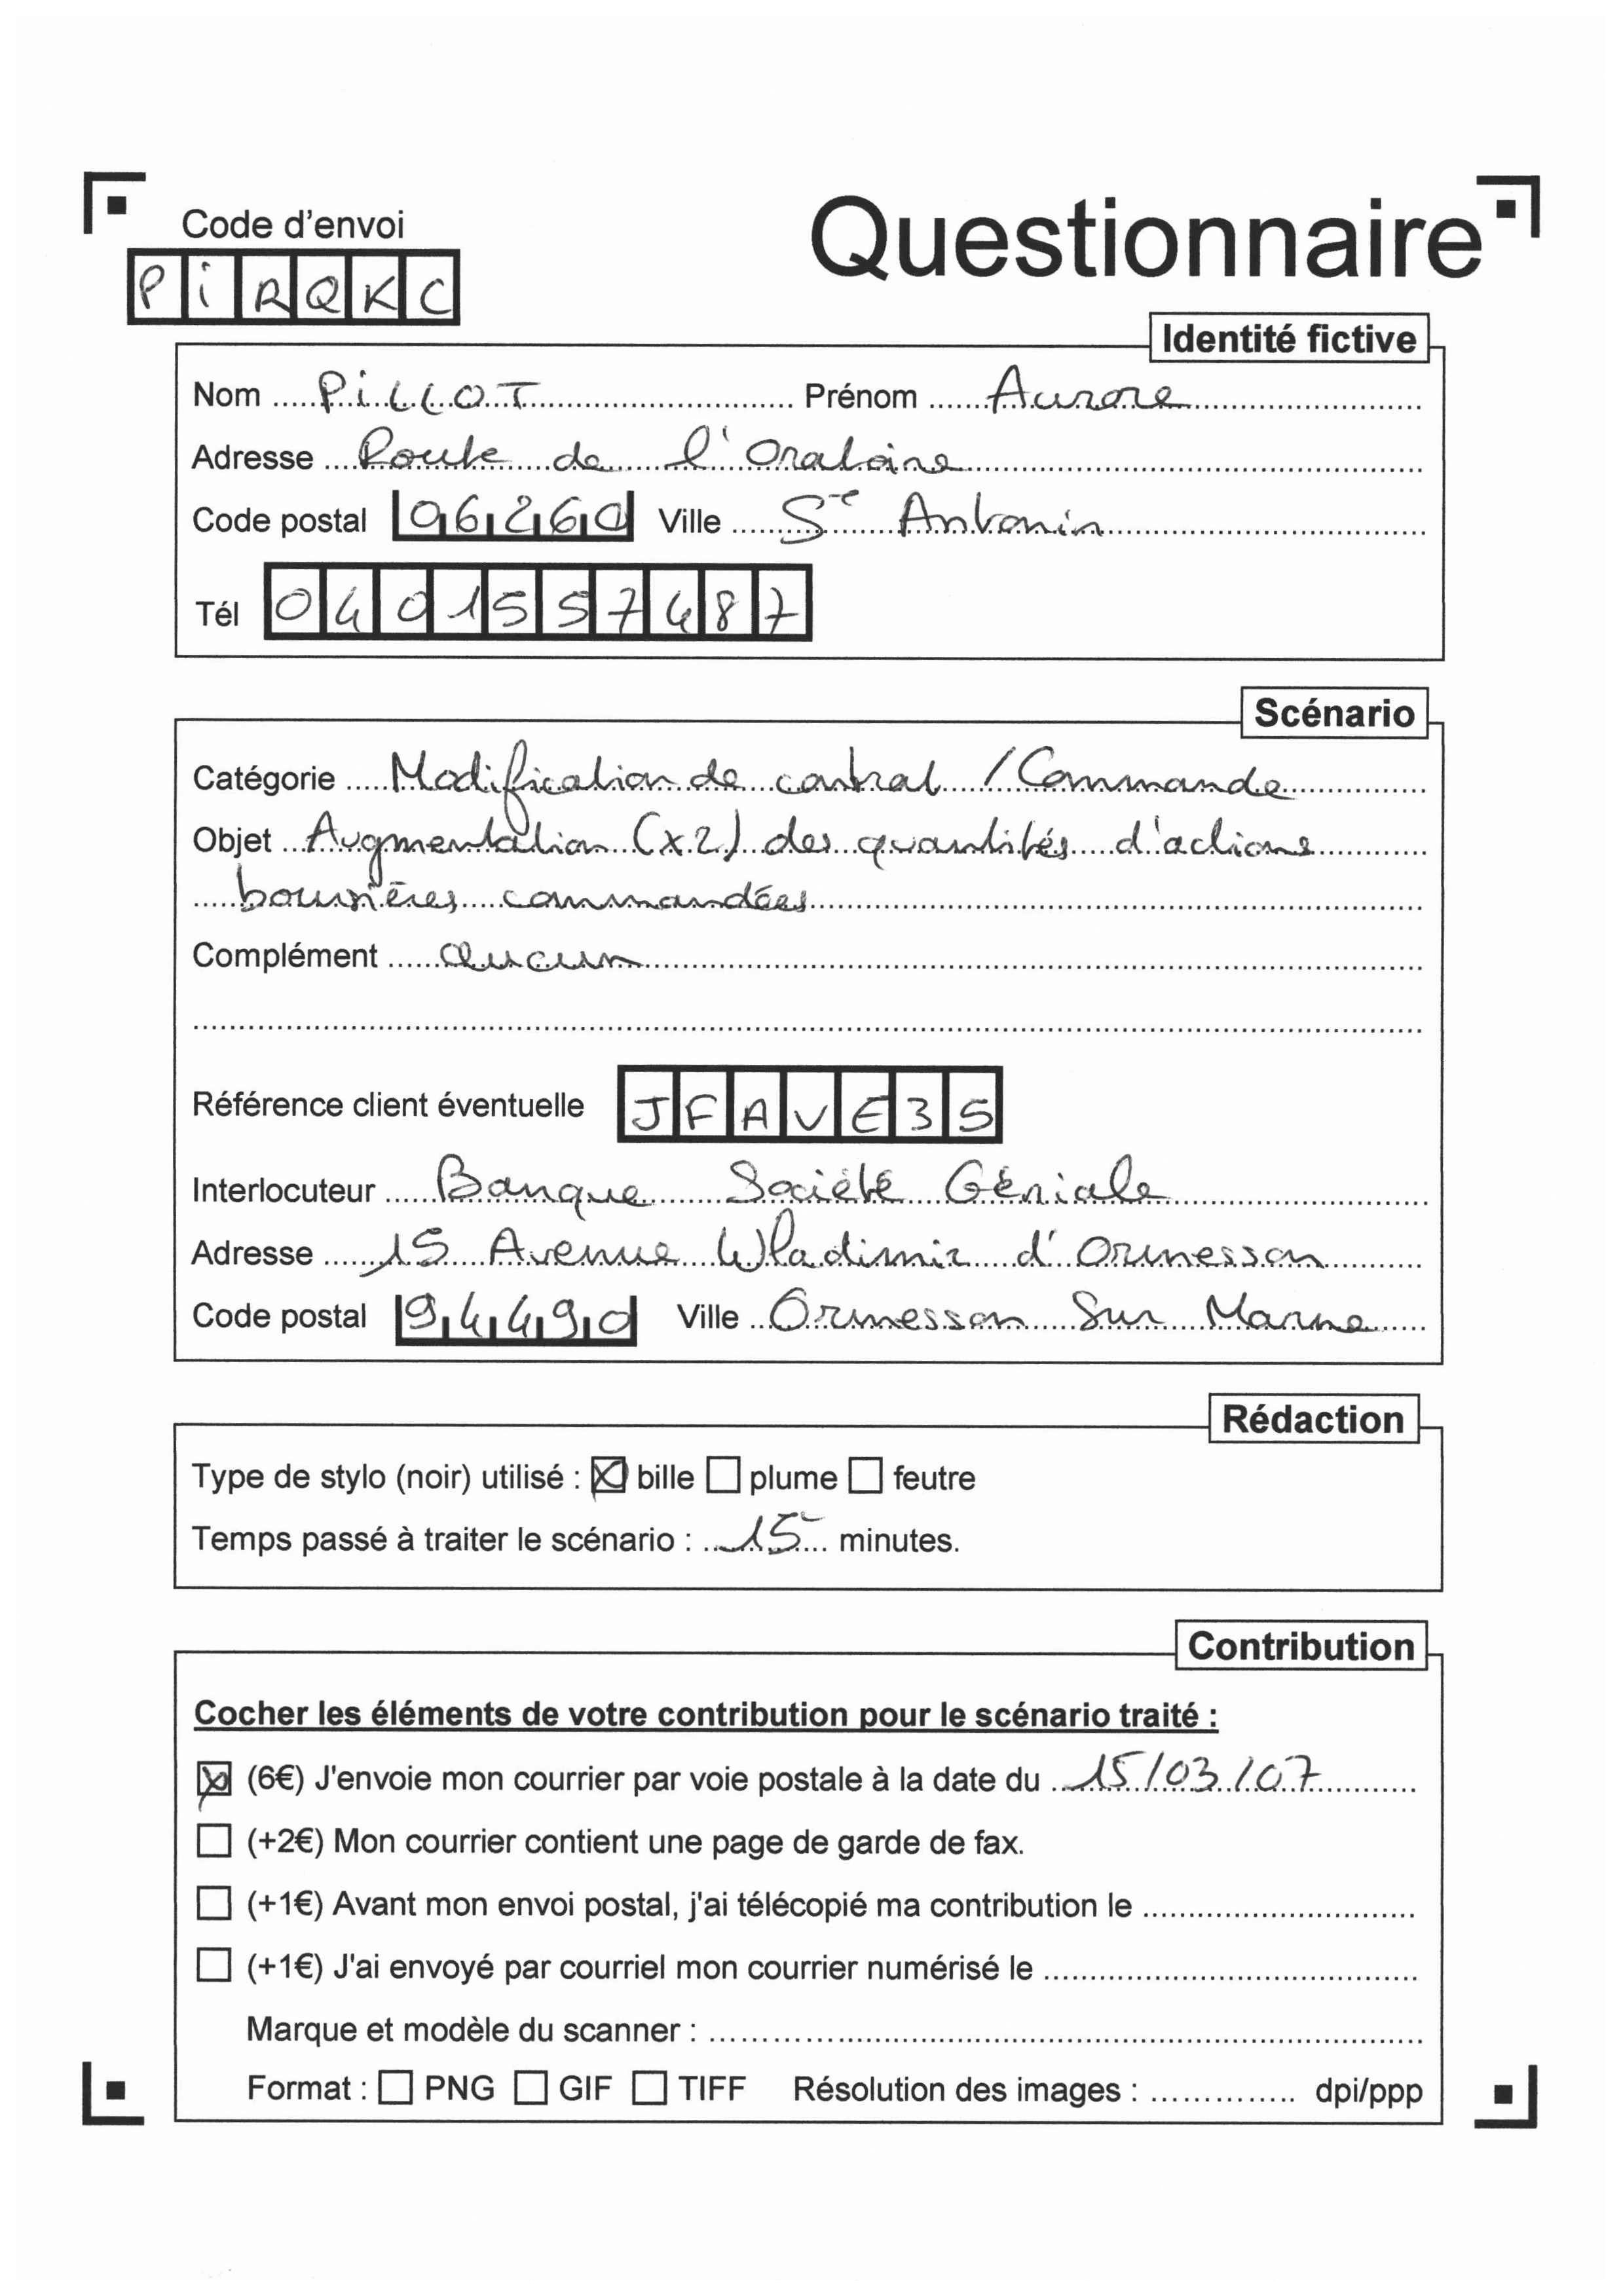 Questionnaire
Code d'envoi
PiRQKC
Identité fictive
Nom PiLLOT Prénom Aurore
Adresse Route de l'Oratoire
Code postal 06260 Ville Ste Antonin
Tél 0401557487
Scénario
Catégorie Modification de contrat / Commande
Objet Augmentation (x2) des quantités d'actions
boursières commandées
Complément aucun
Référence client éventuelle JFAVE35
Interlocuteur Banque Société Géniale
Adresse 15 Avenue Wladimir d'Ormesson
Code postal 94490 Ville Ormesson Sur Marne
Rédaction
Type de stylo (noir) utilisé : bille plume feutre
Temps passé à traiter le scénario : 15 minutes.
Contribution
Cocher les éléments de votre contribution pour le scénario traité :
(6€) J'envoie mon courrier par voie postale à la date du 15/03/07
(+2€) Mon courrier contient une page de garde de fax.
(+1€) Avant mon envoi postal, j'ai télécopié ma contribution le
(+1€) J'ai envoyé par courriel mon courrier numérisé le
Marque et modèle du scanner :
Format : PNG GIF TIFF Résolution des images : dpi/ppp